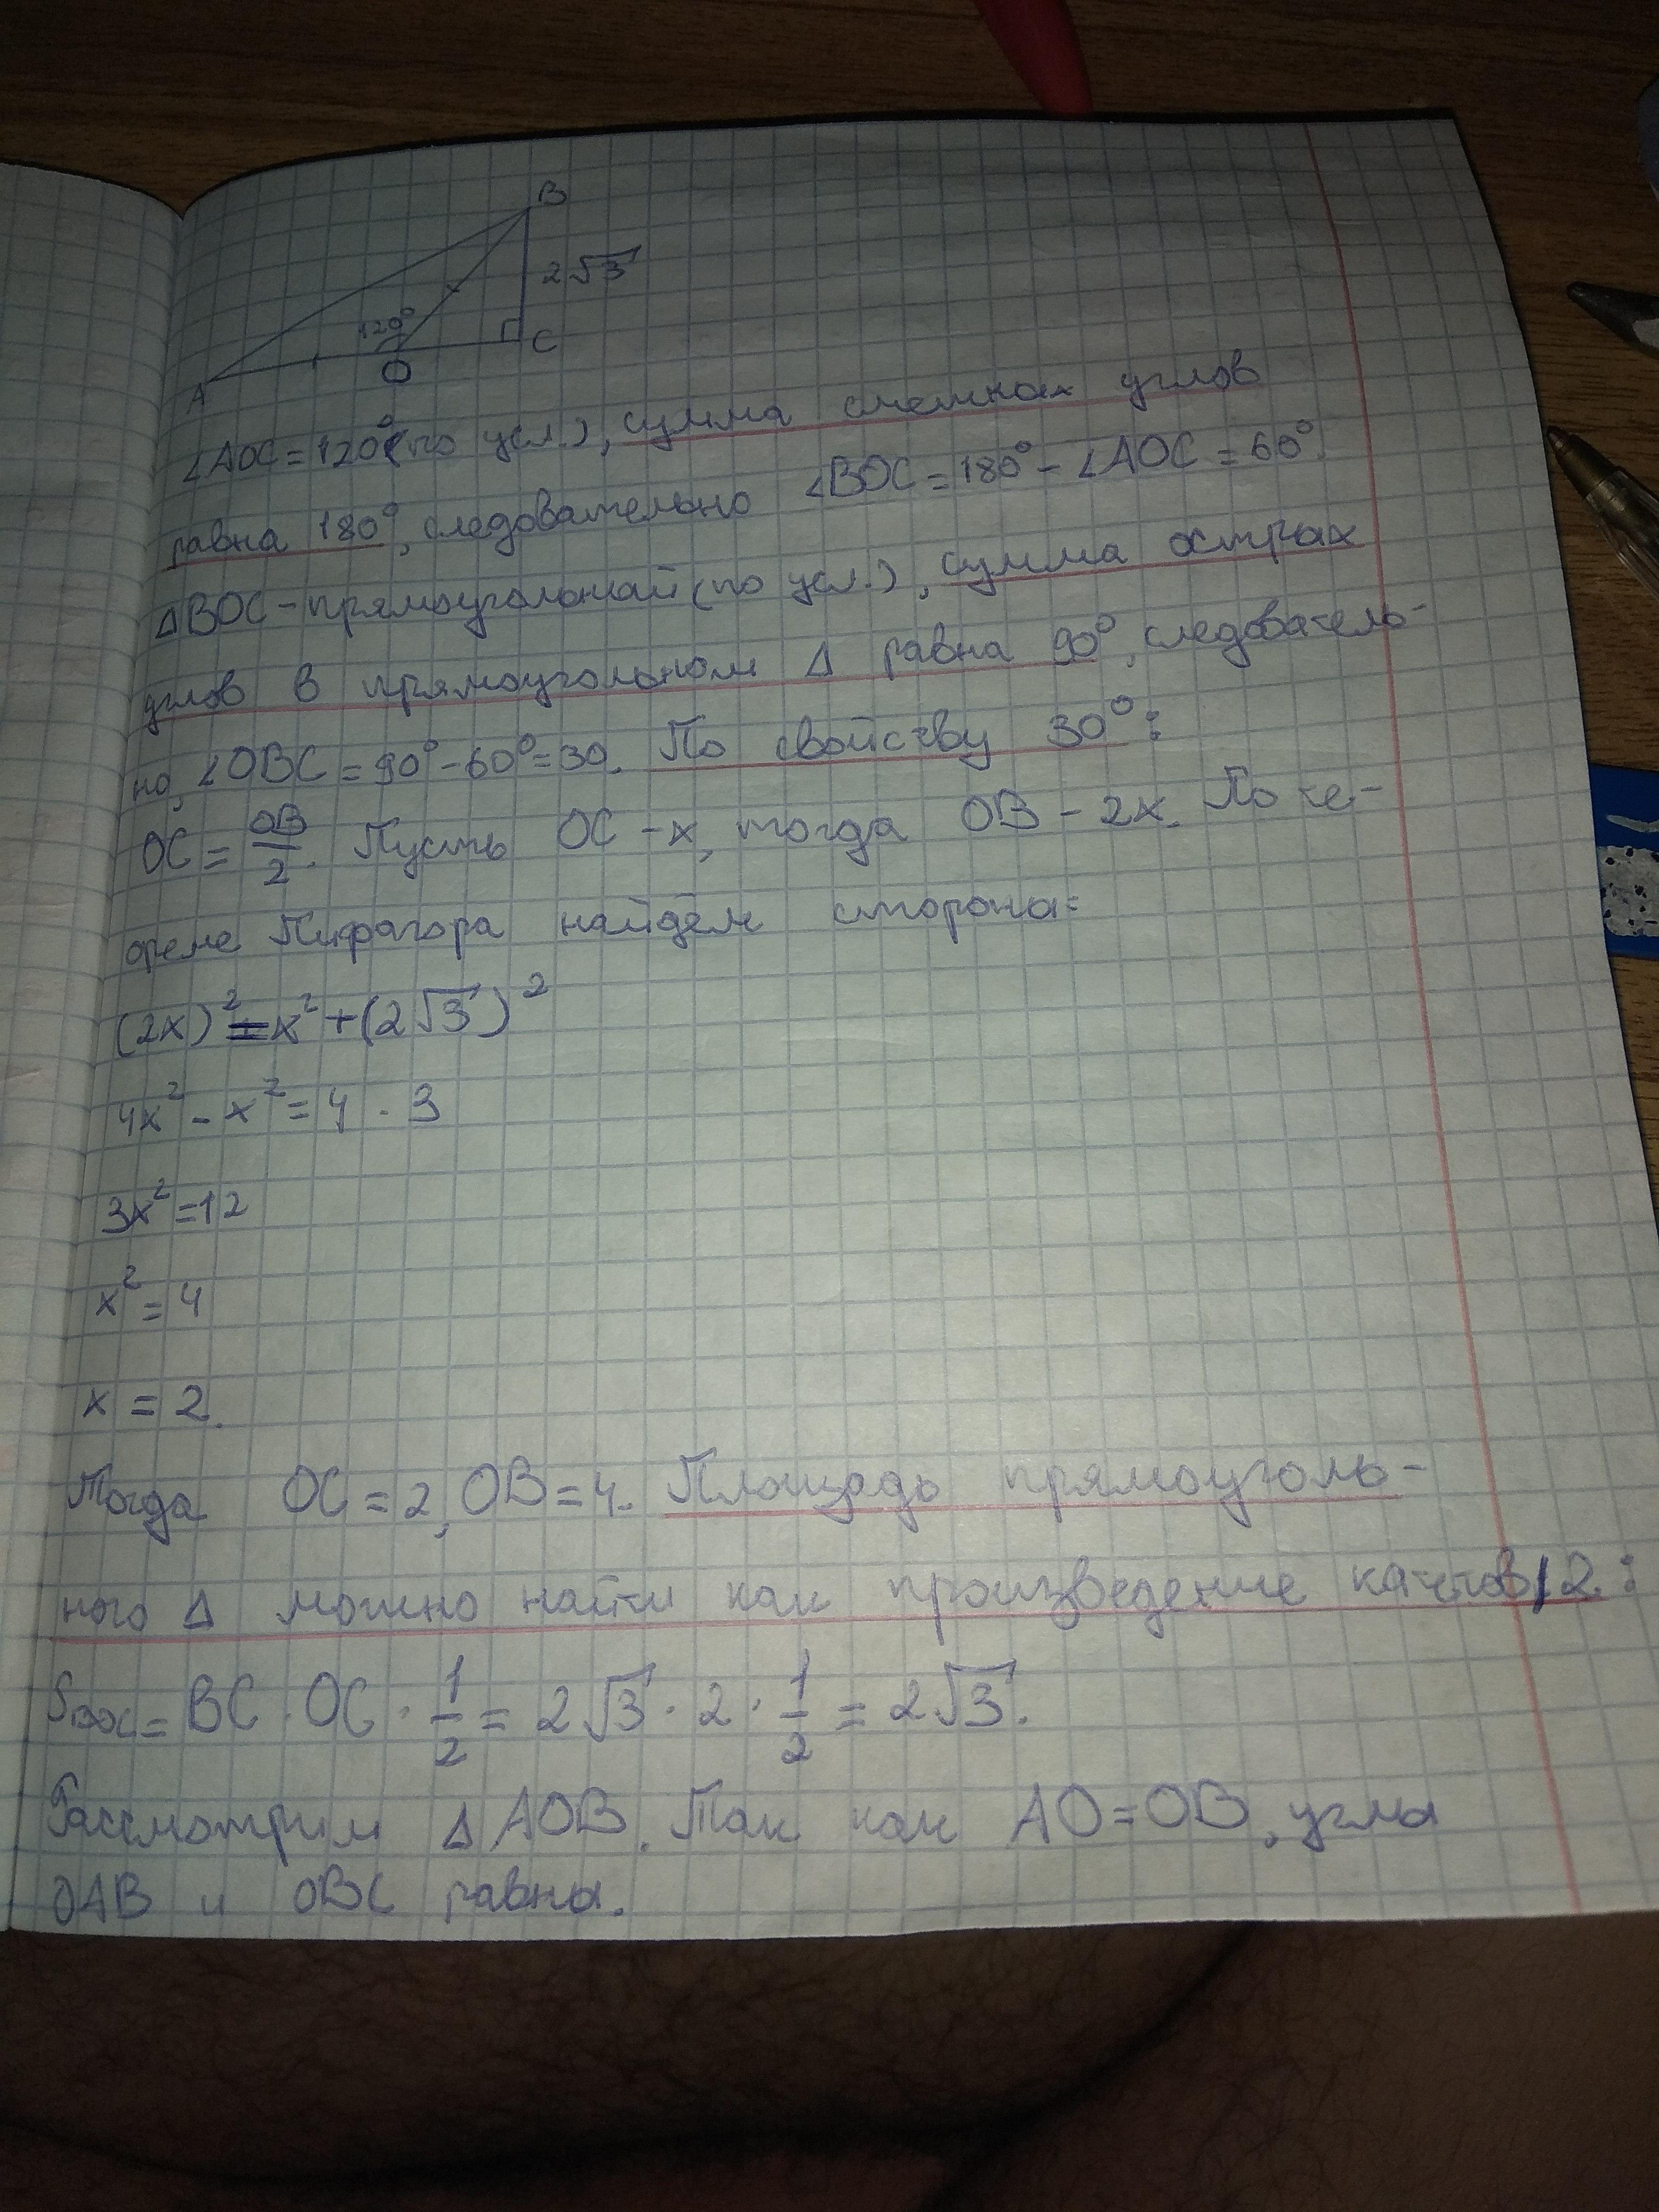 B
2√3
120°
C
O
A
∠AOC=120°(по усл.), сумма смежных углов
равна 180°, следовательно ∠BOC=180°-∠AOC=60°.
△BOC-прямоугольный(по усл.), сумма острых
углов в прямоугольном △ равна 90°, следователь-
но, ∠OBC=90°-60°=30. По свойству 30°:
OC=OB/2. Пусть OC-x, тогда OB-2x. По те-
ореме Пифагора найдём стороны:
(2x)²=x²+(2√3)²
4x²-x²=4·3
3x²=12
x²=4
x=2.
Тогда OC=2, OB=4. Площадь прямоуголь-
ного △ можно найти как произведение катетов/2:
S_BOC=BC·OC·1/2=2√3·2·1/2=2√3.
Рассмотрим △AOB. Так как AO=OB, углы
OAB и OBC равны.